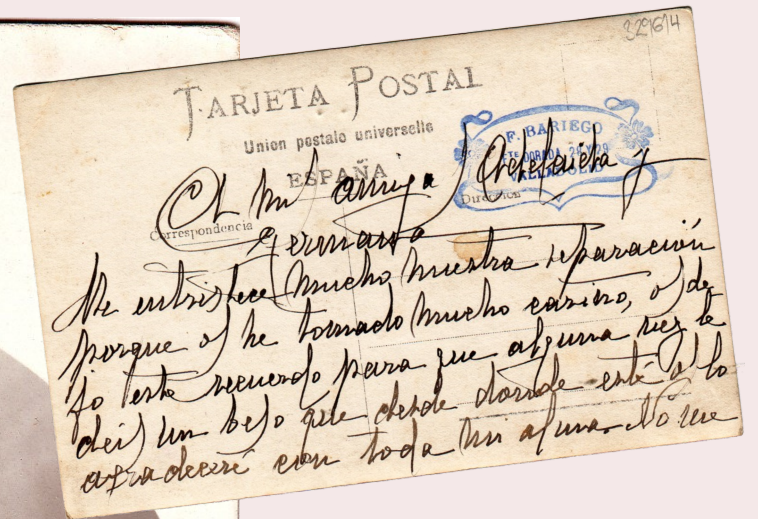 329614
TARJETA POSTAL
Union postale universelle
ESPAÑA
F. BARIEGO
FTE DORADA, 28 Y 29
VALLADOLID
Correspondencia
Dirección
A mi amiga y
Germana
Me entristece mucho nuestra separación
porque os he tomado mucho cariño, os de
jo este recuerdo para que alguna vez le
deis un beso que desde donde esté os lo
agradeceré con toda mi alma. No me